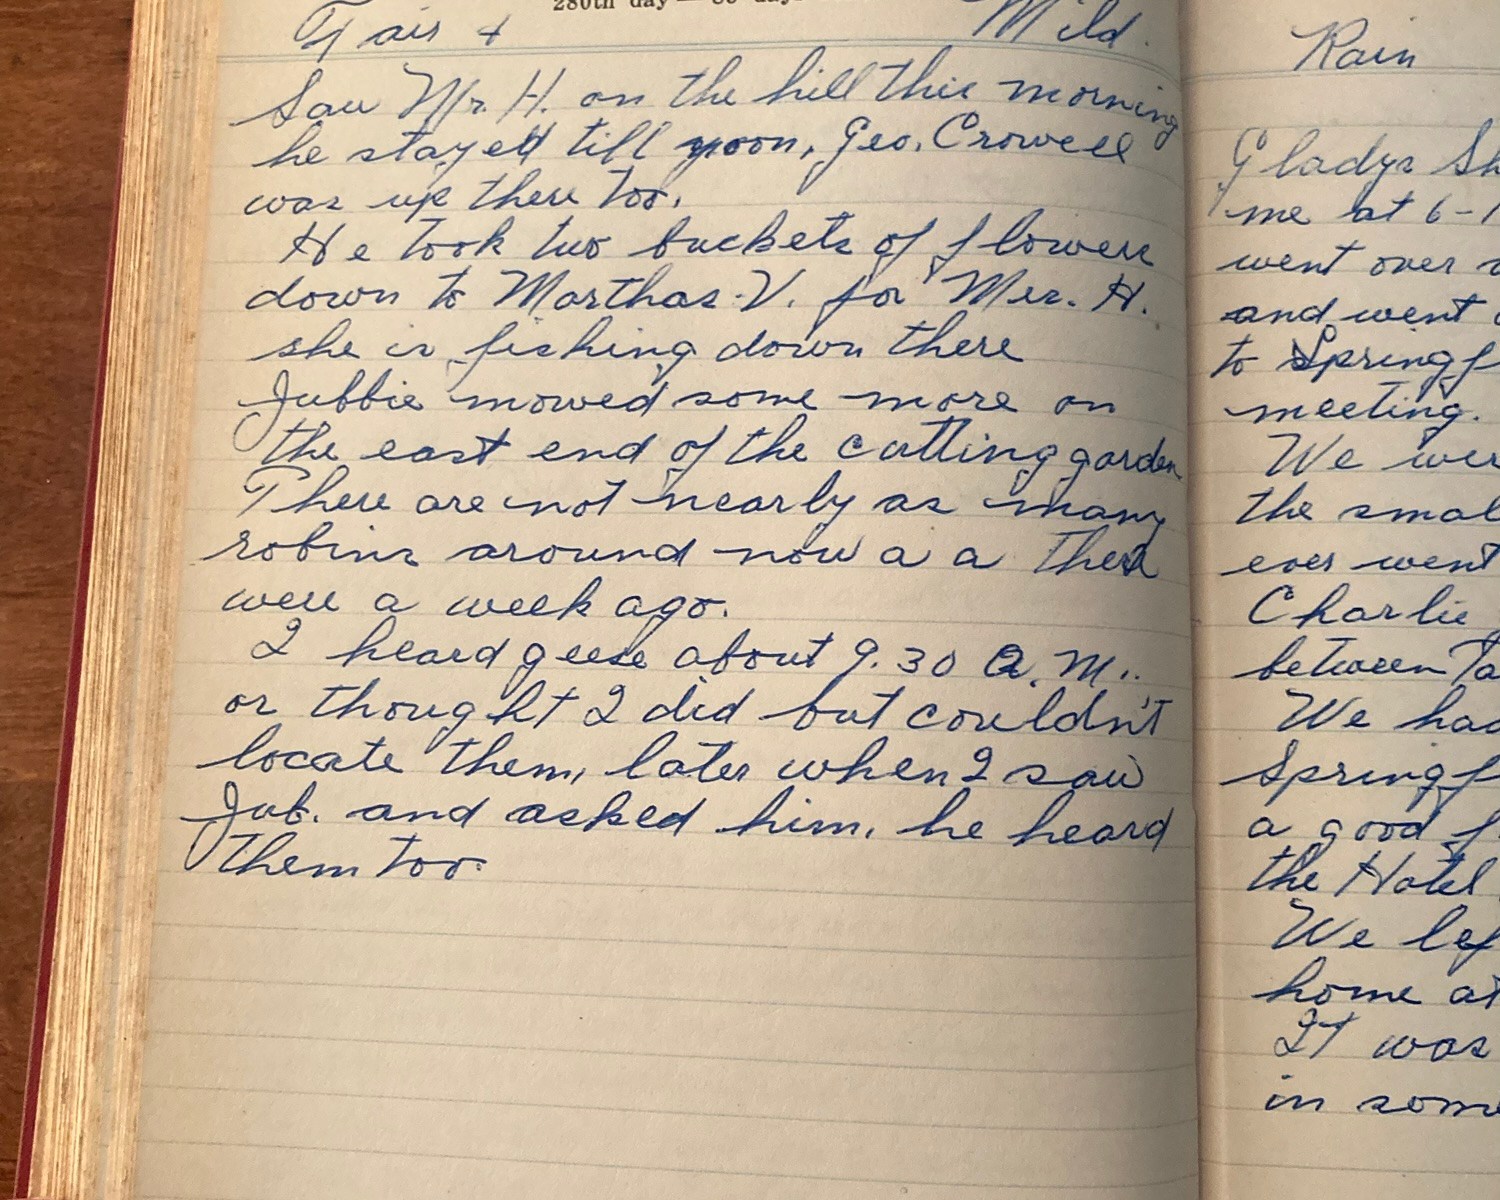 280th day — 85 days
Fair & Mild.
Saw Mr. H. on the hill this morning
he stayed till noon, Geo. Crowell
was up there too.
He took two buckets of flowers
down to Marthas-V. for Mrs. H.
she is fishing down there
Jubbie mowed some more on
the east end of the cutting garden
There are not nearly as many
robins around now a a there
were a week ago.
I heard geese about 9.30 A.M..
or thought I did but couldn't
locate them, later when I saw
Jub. and asked him, he heard
them too.
Rain
Gladys Sh
me at 6-1
went over
and went
to Springf
meeting.
We wer
the smal
ever went
Charlie
between Ta
We had
Springf
a good f
the Hotel
We lef
home at
It was
in some